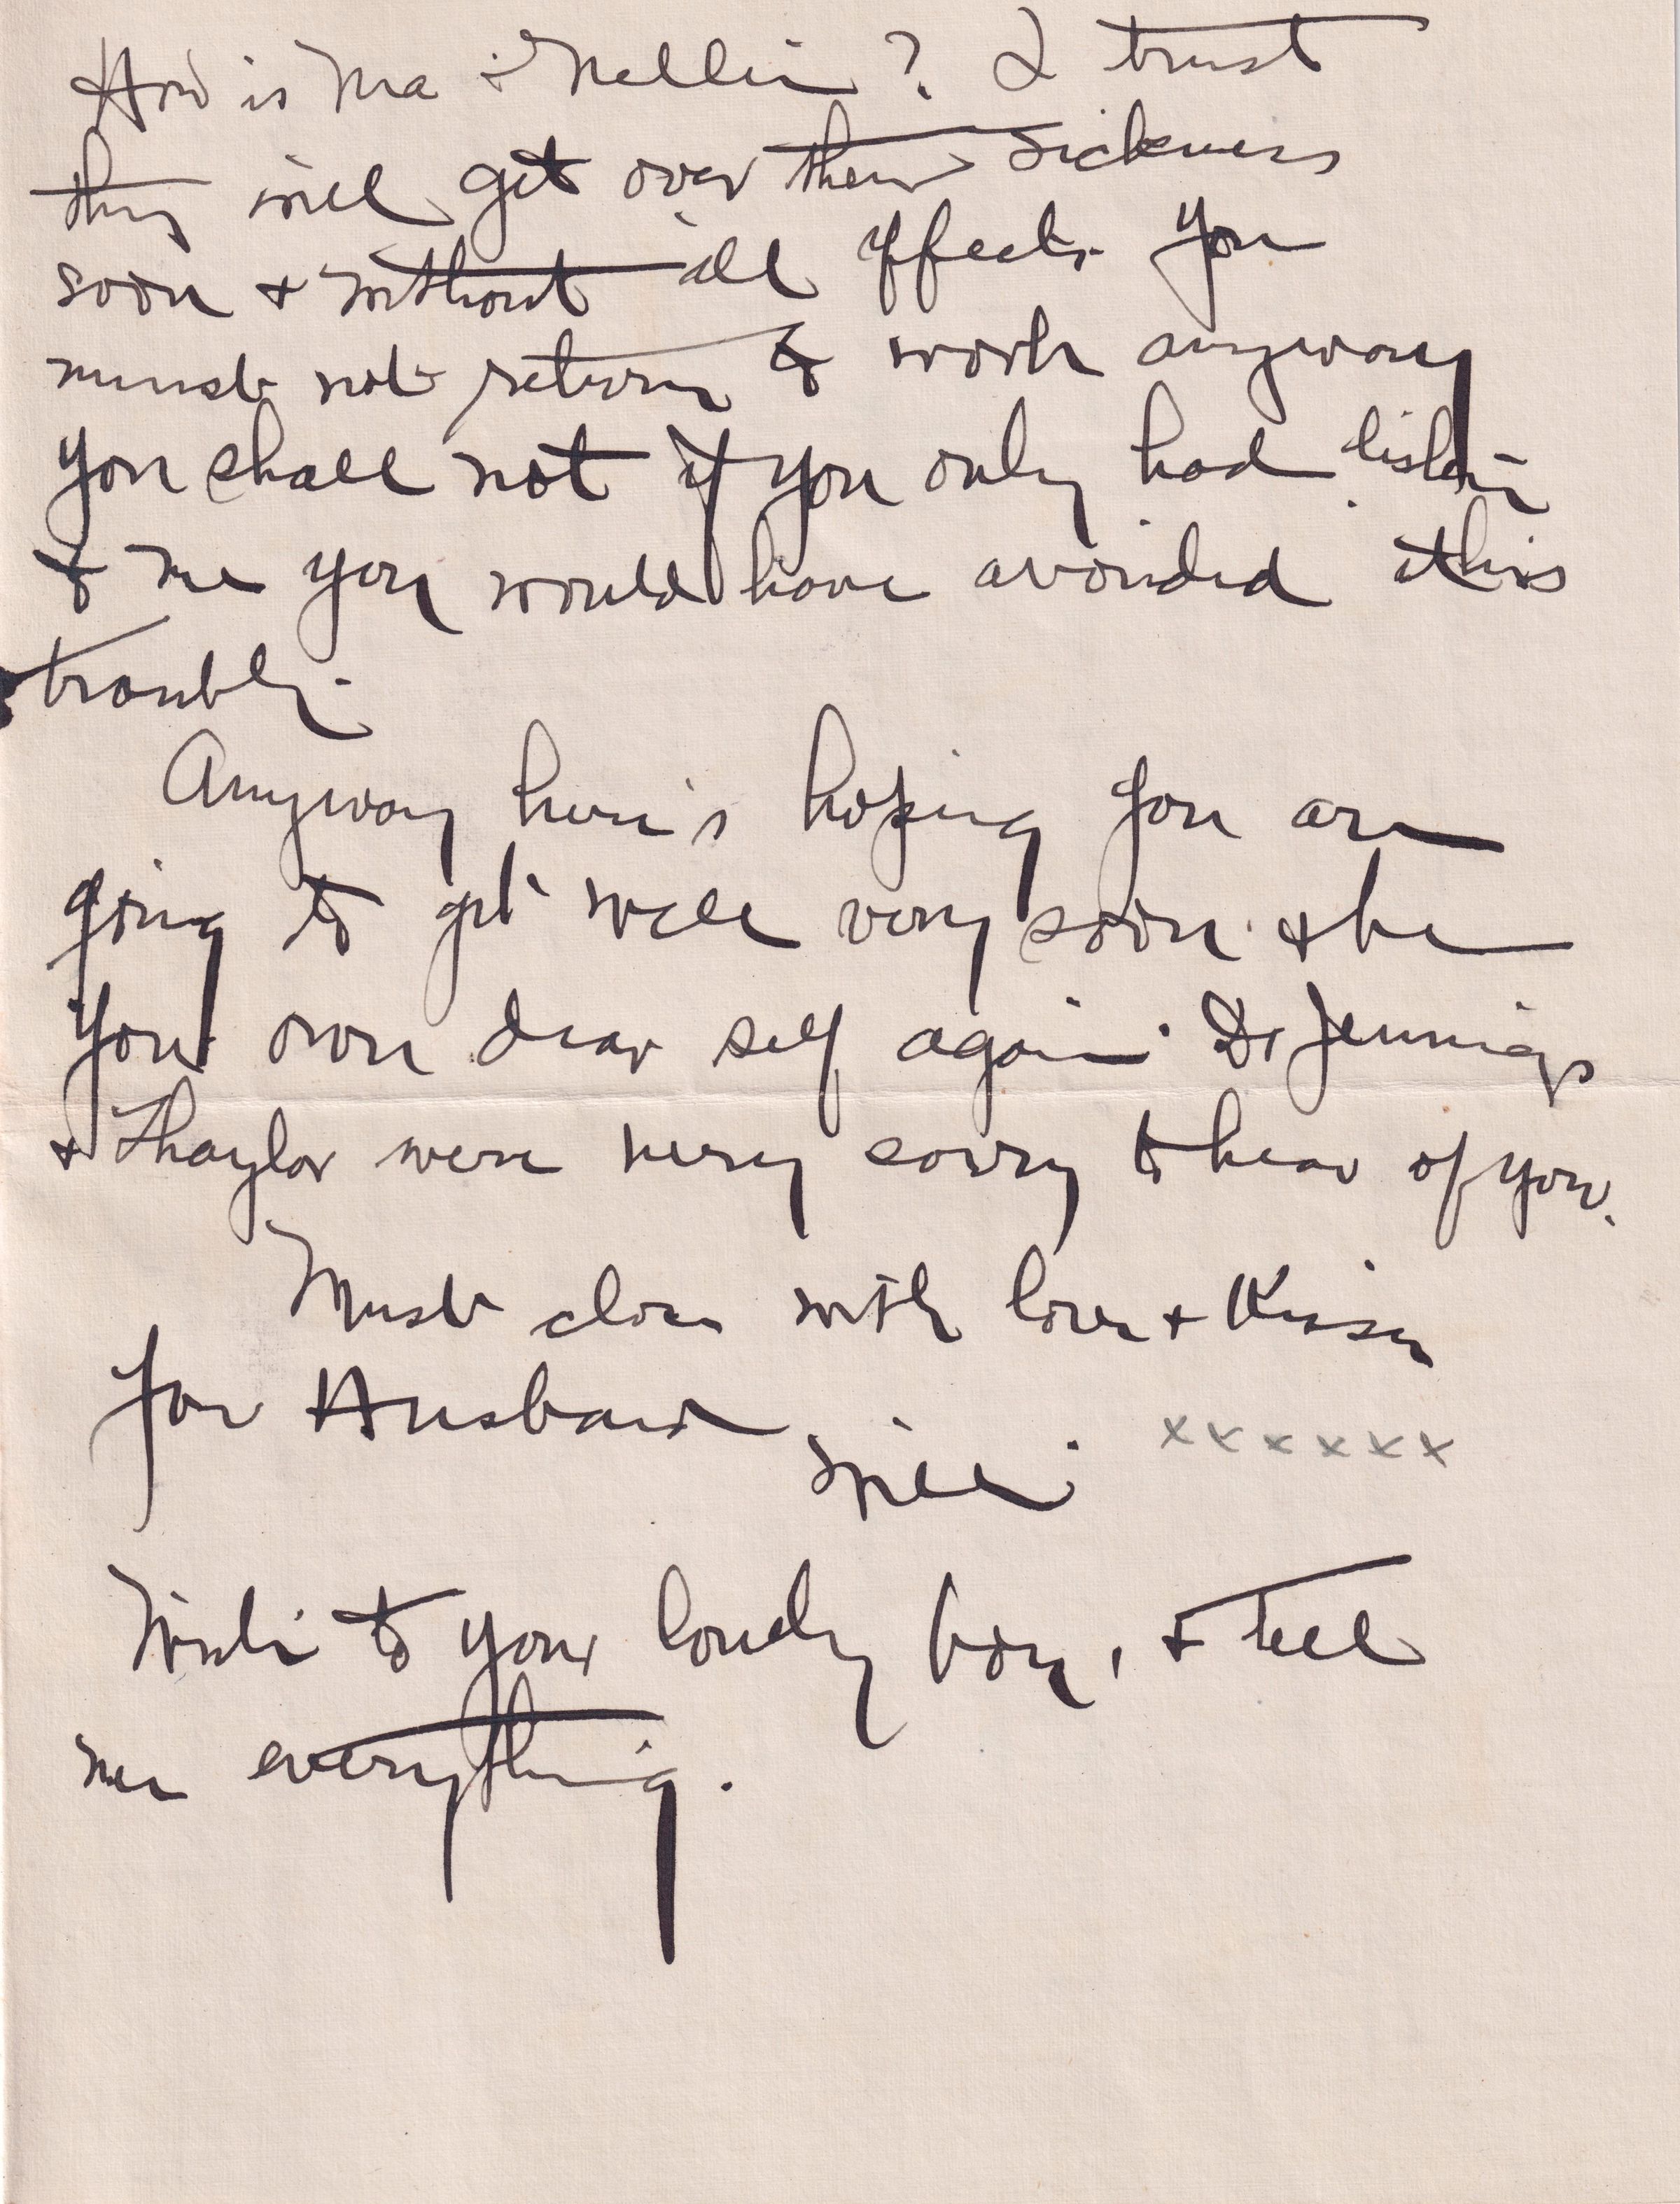 How is Ma & Nellie? I trust
they will get over their sickness
soon & without ill effects. You
must not return to work anyway
you shall not if you only had listen
to me you would have avoided this
trouble.
Anyway here's hoping you are
going to get well very soon & be
your own dear self again. Dr Jennings
& Thaylor were very sorry to hear of you.
Must close with love & Kisses
for Husband
xxxxxx
Write to your lonely boy, & tell
me everything.